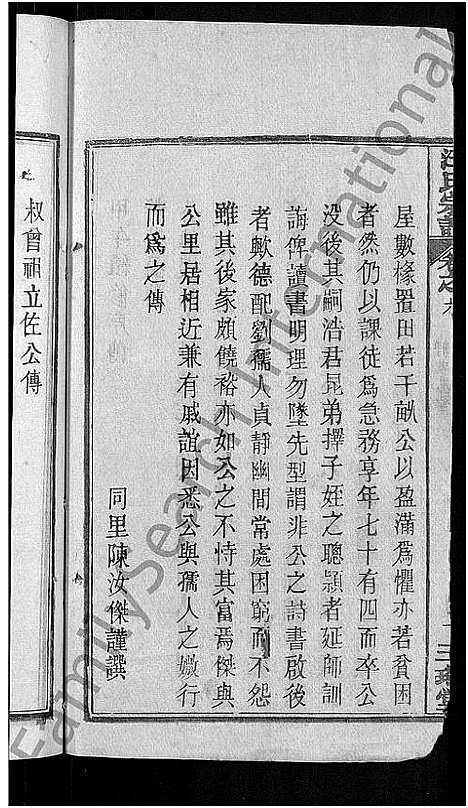 汪氏宗譜
卷之九
屋數椽置田若干畝公以盈滿爲懼亦若貧困
者然仍以課徒爲急務享年七十有四而卒公
没後其嗣浩君昆弟擇子姪之聰穎者延師訓
誨俾讀書明理勿墜先型謂非公之詩書啟後
者歟德配劉孺人貞靜幽閒常處困窮而不怨
雖其後家頗饒裕亦如公之不恃其富焉傑與
公里居相近兼有戚誼因悉公與孺人之媺行
而爲之傳
同里陳汝傑謹譔
叔曾祖立佐公傳
FamilySearch International